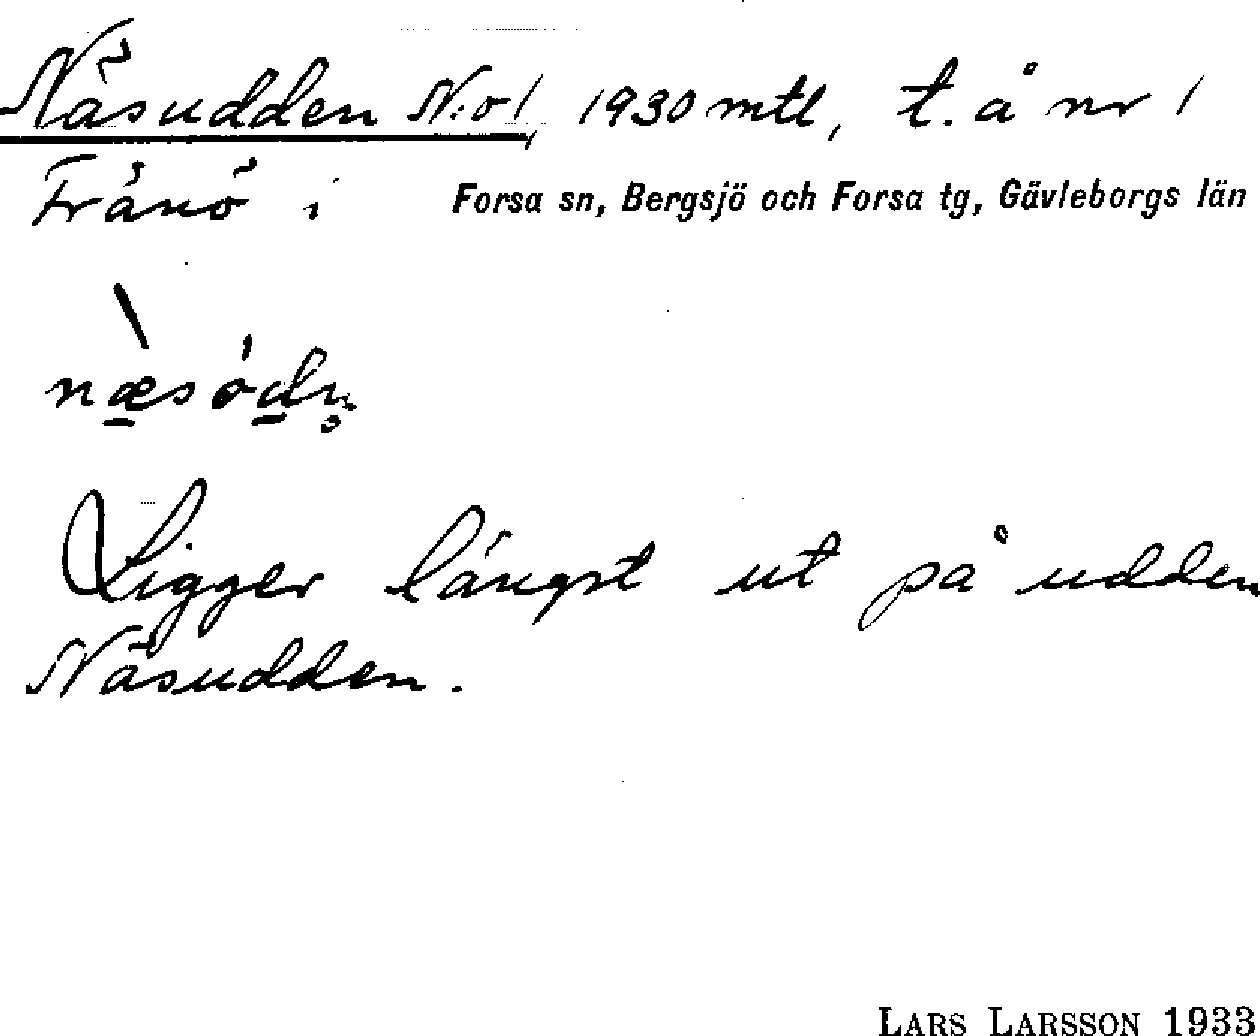 Näsudden N:o 1, 1930 mtl, t. å nr 1
Frånö i Forsa sn, Bergsjö och Forsa tg, Gävleborgs län
Ligger längst ut på udden
Näsudden.
LARS LARSSON 1933